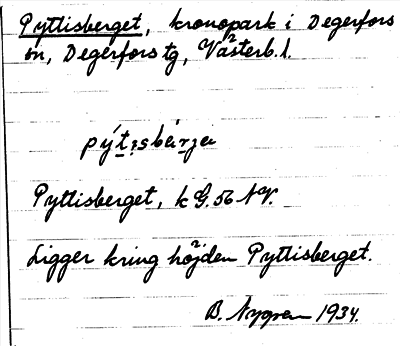 Pyttisberget, kronopark i Degerfors
sn, Degerfors tg, Västerb. l.
Pyttisberget, k G. 56 NV.
Ligger kring höjden Pyttisberget.
B. Nygren 1934.